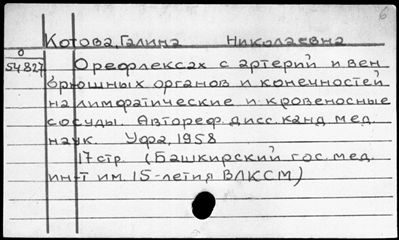 6
Котова, Галина Николаевна
О
54827 О рефлексах с артерий и вен
брюшных органов и конечностей
на лимфатические и кровеносные
сосуды. Автореф. дисс. канд. мед.
наук. Уфа, 1958
17 стр. (Башкирский гос. мед.
ин-т им. 15-летия ВЛКСМ)